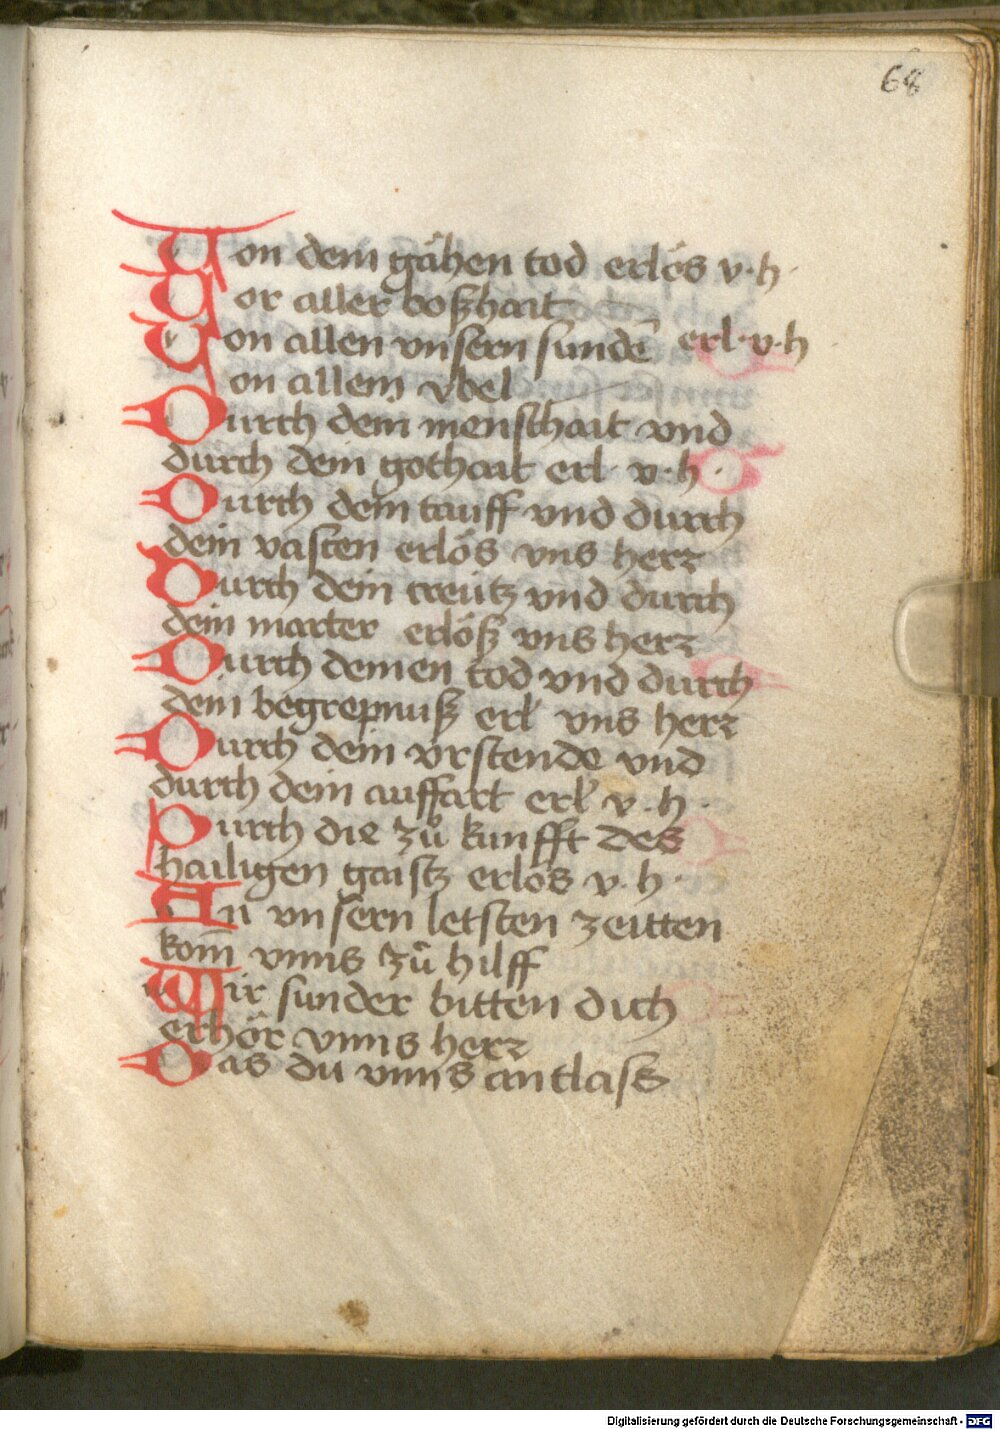 68
Von dem gähen tod erlös v. h.
Vor aller boszhait
Von allen vnsern sundē erl. v. h
Von allem vbel
Durch dein menschait vnd
durch dein gothait erl. v. h.
Durch dein tauff vnd durch
dein vasten erlös vns herz
Durch dein creütz vnd durch
dein marter erlösz vns herz
Durch deinen tod vnd durch
dein begrepnusz erl vns herz
Durch dein vrstende vnd
durch dein auffart erl v. h.
Durch die zů kunfft des
hailigen gaistz erlös v. h.
An vnsern letsten zeitten
kom̄ vnns zů hilff
Wir sunder bitten dich
erhör vnns herz
Das du vnns antlast
Digitalisierung gefördert durch die Deutsche Forschungsgemeinschaft - DFG